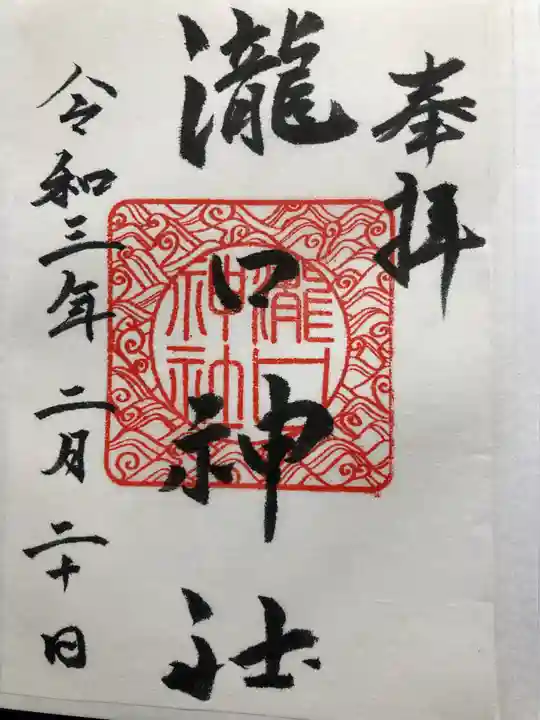 奉拝
瀧口神社
瀧口
神社
令和三年 二月 二十日